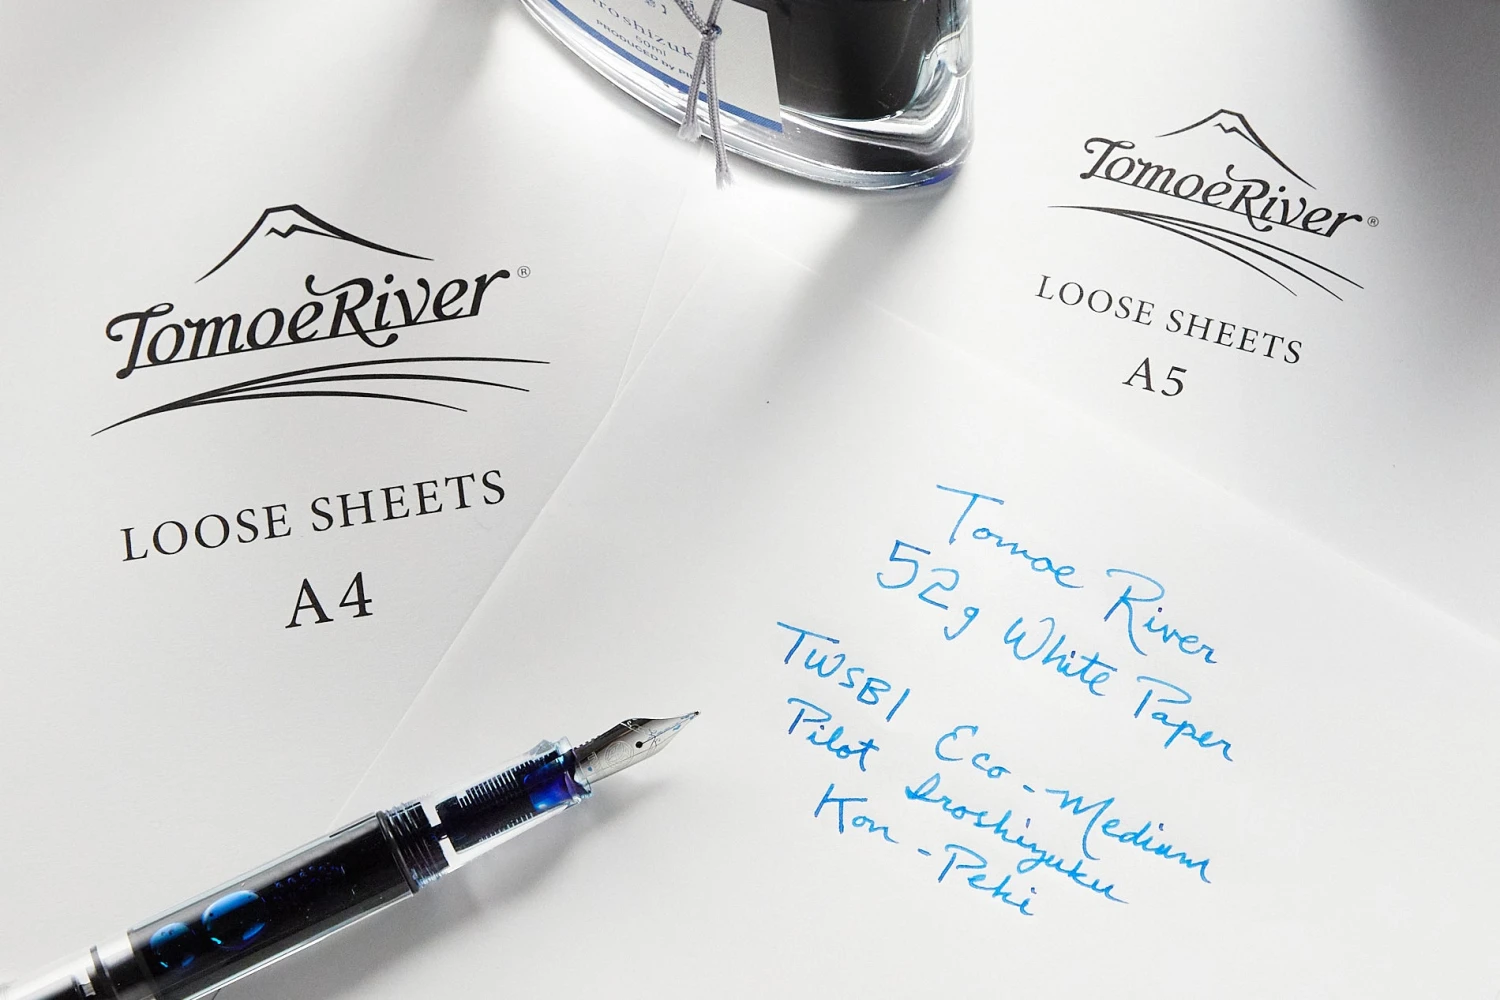 50ml
TomoeRiver®
LOOSE SHEETS
A4
TomoeRiver®
LOOSE SHEETS
A5
Tomoe River
52g White Paper
TWSBI Eco - Medium
Pilot Iroshizuku
Kon - Peki